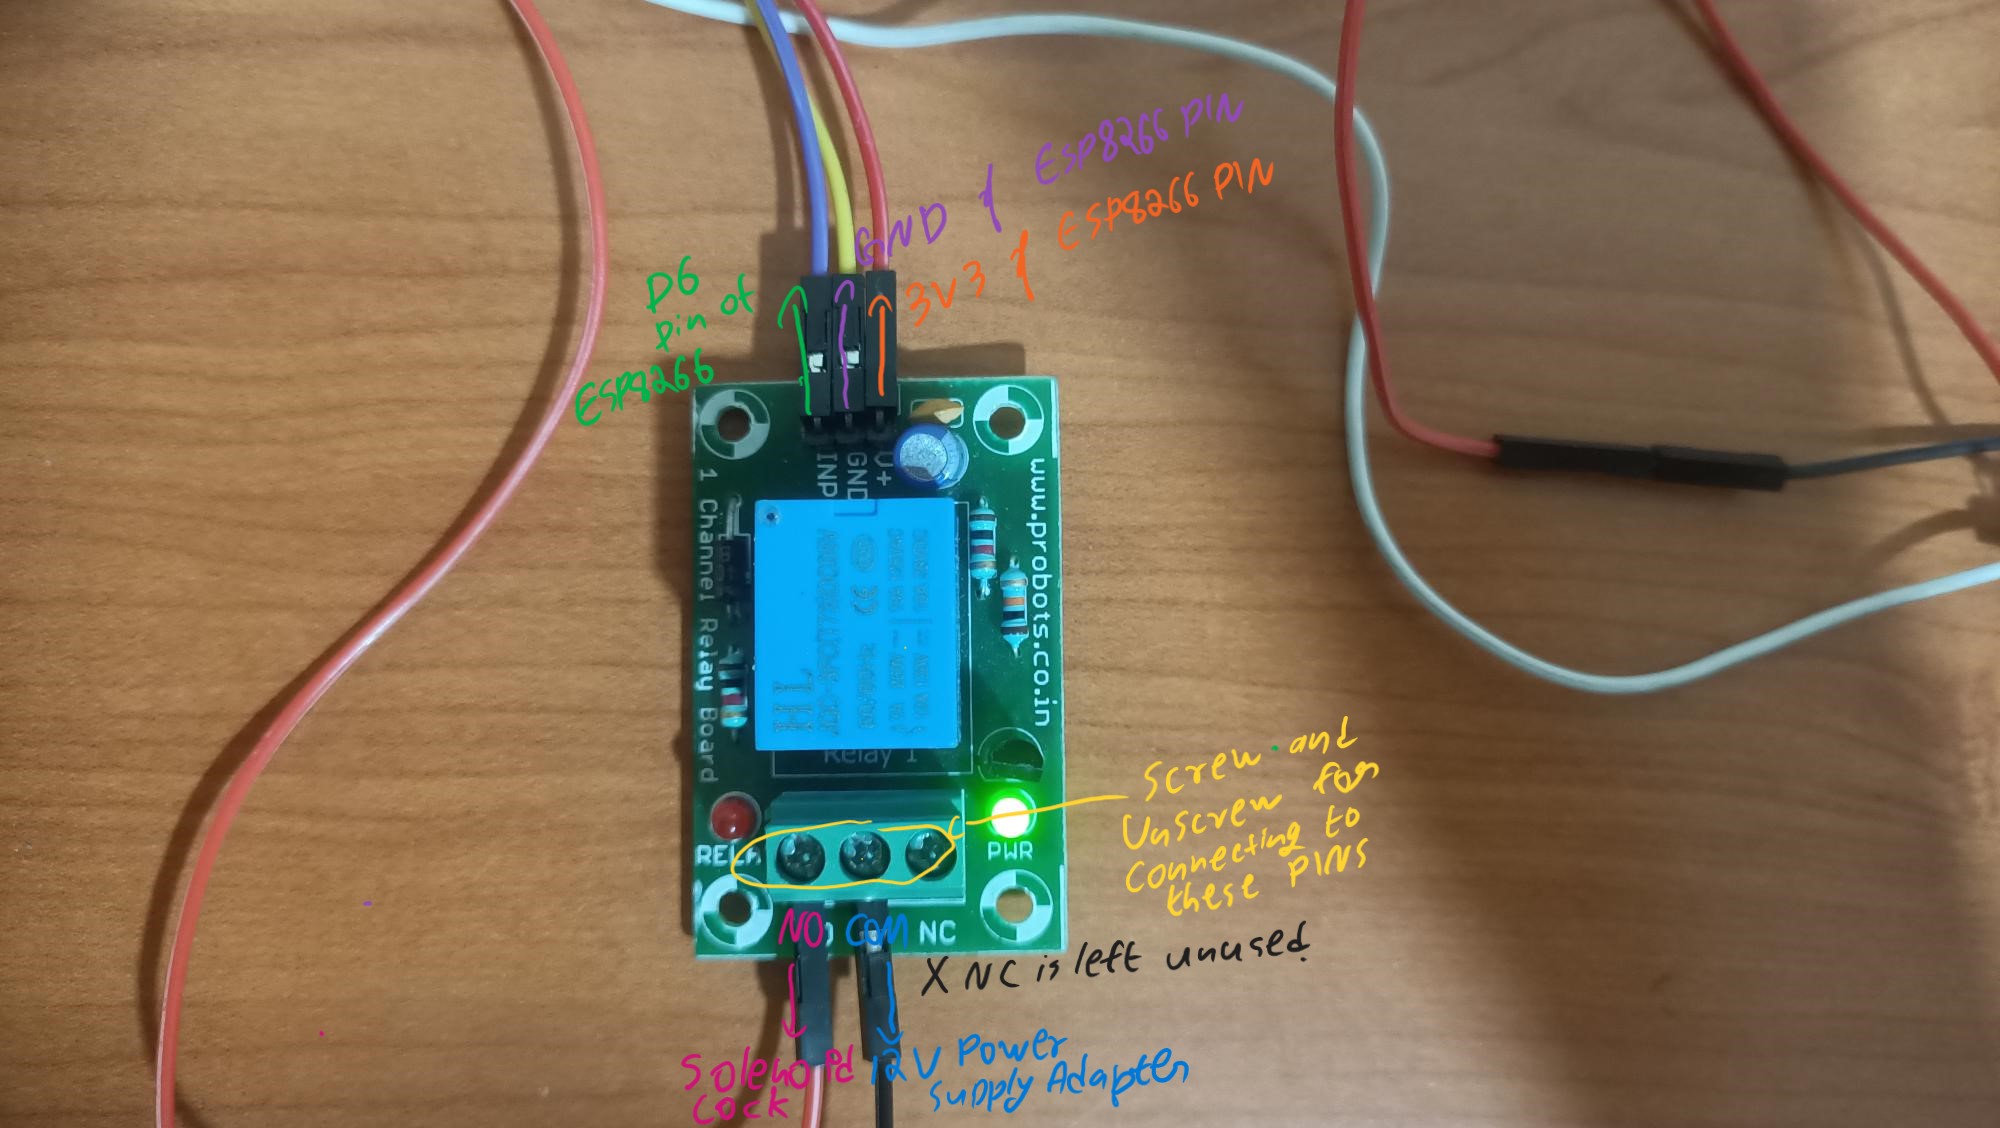 GND } ESP8266 PIN
3V3 } ESP8266 PIN
D6
pin of
ESP8266
INP
GND
V+
1 Channel Relay Board
www.probots.co.in
HL
Relay 1
RELA
PWR
Screw and
Unscrew for
Connecting to
these PINS
NO COM NC
X NC is left unused.
Solenoid
Lock
12V Power
Supply Adapter